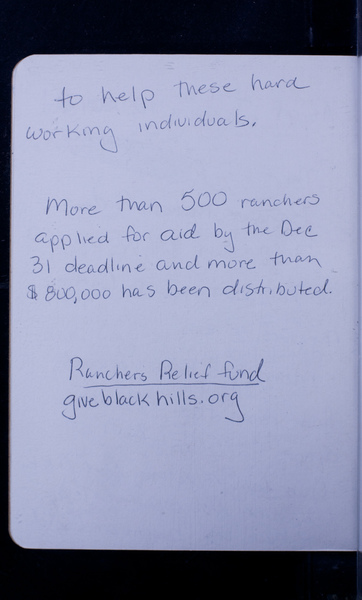 to help these hard
working individuals.
More than 500 ranchers
applied for aid by the Dec
31 deadline and more than
$800,000 has been distributed.
Ranchers Relief fund
giveblackhills.org